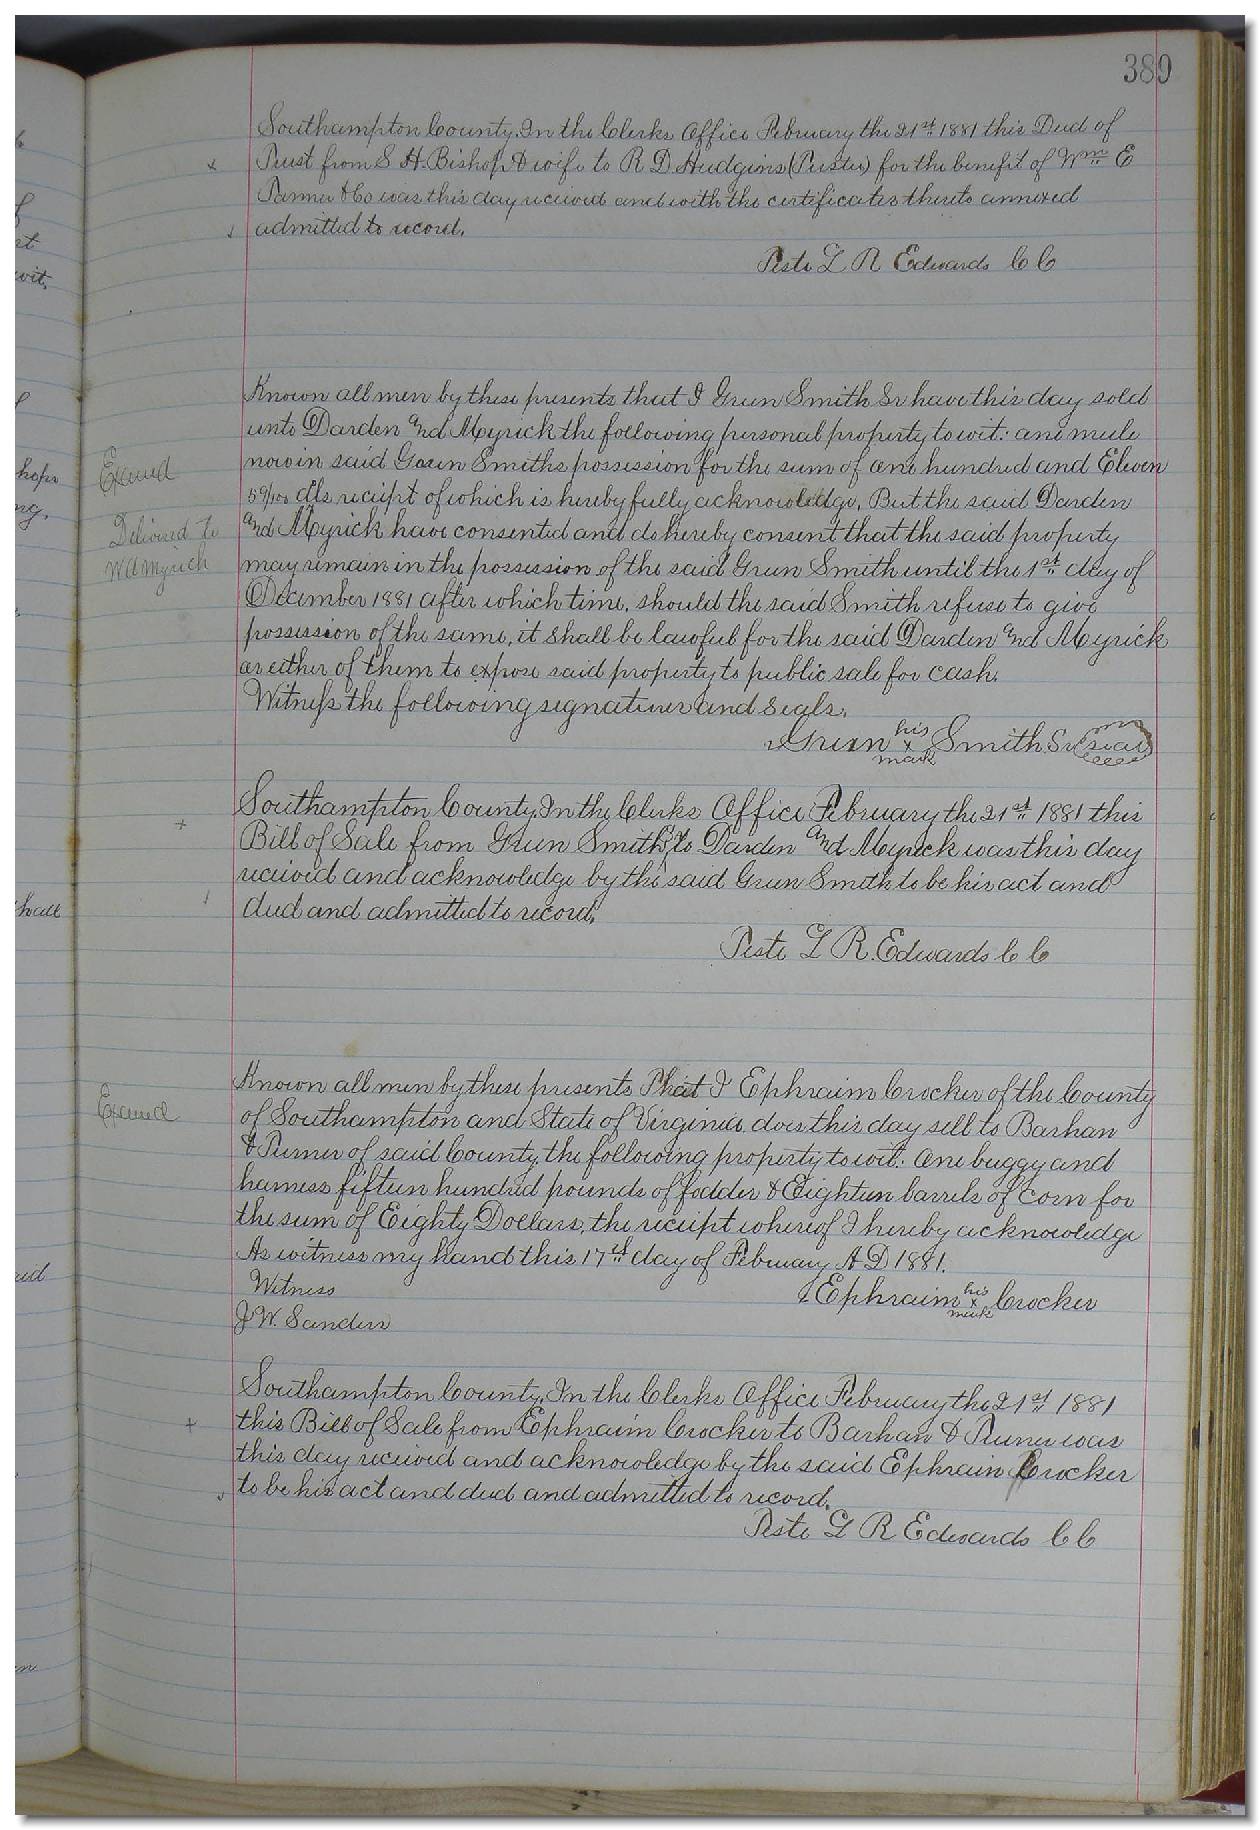 389
Southampton County, In the Clerks Office February the 21st 1881 this Deed of
Trust from S H. Bishop & wife to R D Hudgins (Trustee) for the benefit of Wm E
Tanner & Co was this day received and with the certificates thereto annexed
admitted to record.
Teste L R Edwards C C
Known all men by these presents that I Green Smith Sr have this day sold
unto Darden and Myrick the following personal property to wit: one mule
now in said Green Smiths possession for the sum of one hundred and Eleven
59/100 dls receipt of which is hereby fully acknowledge, But the said Darden
and Myrick have consented and do hereby consent that the said property
may remain in the possession of the said Green Smith until the 1st day of
December 1881 after which time, should the said Smith refuse to give
possession of the same, it shall be lawful for the said Darden and Myrick
or either of them to expose said property to public sale for cash.
Witness the following signatures and seals.
Green his x mark Smith Sr seal
Examd
Delivered to
W A Myrick
Southampton County, In the Clerks Office February the 21st 1881 this
Bill of Sale from Green Smith Sr to Darden and Myrick was this day
received and acknowledge by the said Green Smith to be his act and
deed and admitted to record.
Teste L R. Edwards C C
Known all men by these presents That I Ephraim Crocker of the County
of Southampton and State of Virginia does this day sell to Barham
& Turner of said County, the following property to wit: One buggy and
harness fifteen hundred pounds of fodder & Eighteen barrels of corn for
the sum of Eighty Dollars, the receipt whereof I hereby acknowledge
As witness my hand this 17th day of February A D 1881.
Witness
Ephraim his x mark Crocker
J W. Sanders
Examd
Southampton County, In the Clerks Office February the 21st 1881
this Bill of Sale from Ephraim Crocker to Barham & Turner was
this day received and acknowledge by the said Ephraim Crocker
to be his act and deed and admitted to record.
Teste L R Edwards C C